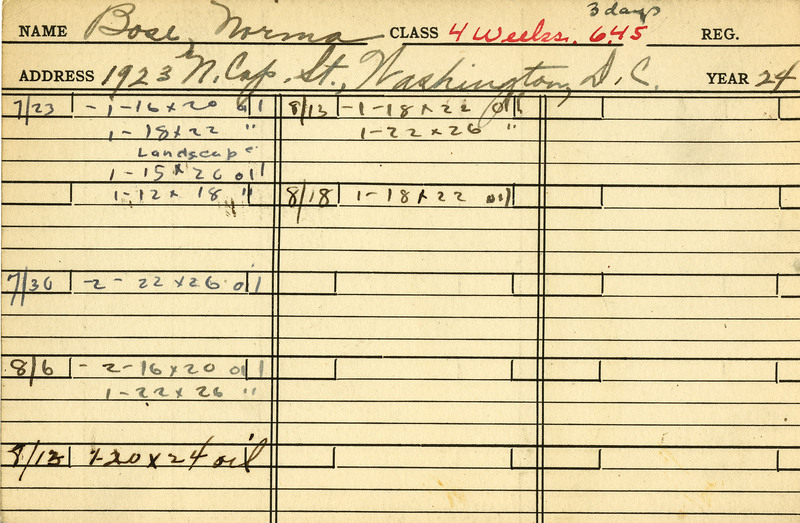 3 days
NAME Bose, Norma CLASS 4 Weeks. 6.45 REG.
ADDRESS 1923 N. Cap. St., Washington, D. C. YEAR 24
7/23 - 1-16 x 20 oil
1- 18 x 22 "
Landscape
1- 15 x 20 oil
1- 12 x 18 "
7/30 -2- 22 x 26 oil
8/6 - 2-16 x 20 oil
1-22 x 26 "
8/13 1-20 x 24 oil
8/13 -1-18 x 22 oil
1-22 x 26 "
8/18 1-18 x 22 oil